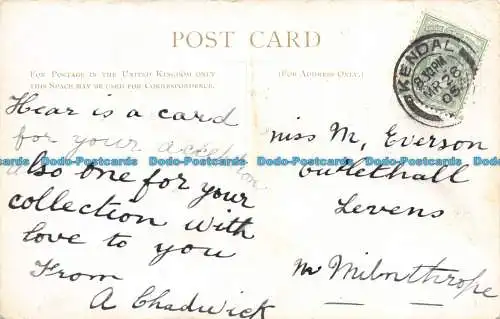 POST CARD
FOR POSTAGE IN THE UNITED KINGDOM ONLY
THIS SPACE MAY BE USED FOR CORRESPONDENCE.
(FOR ADDRESS ONLY.)
KENDAL
8.10PM
MR 26
05
Hear is a card
for your
also one for your
collection with
love to you
From
A Chadwick
Miss M, Everson
Levens
Nr Milnthrope
Dodo-Postcards Dodo-Postcards Dodo-Postcards Dodo-Postcards Dodo-Postcards Dodo-Postcards